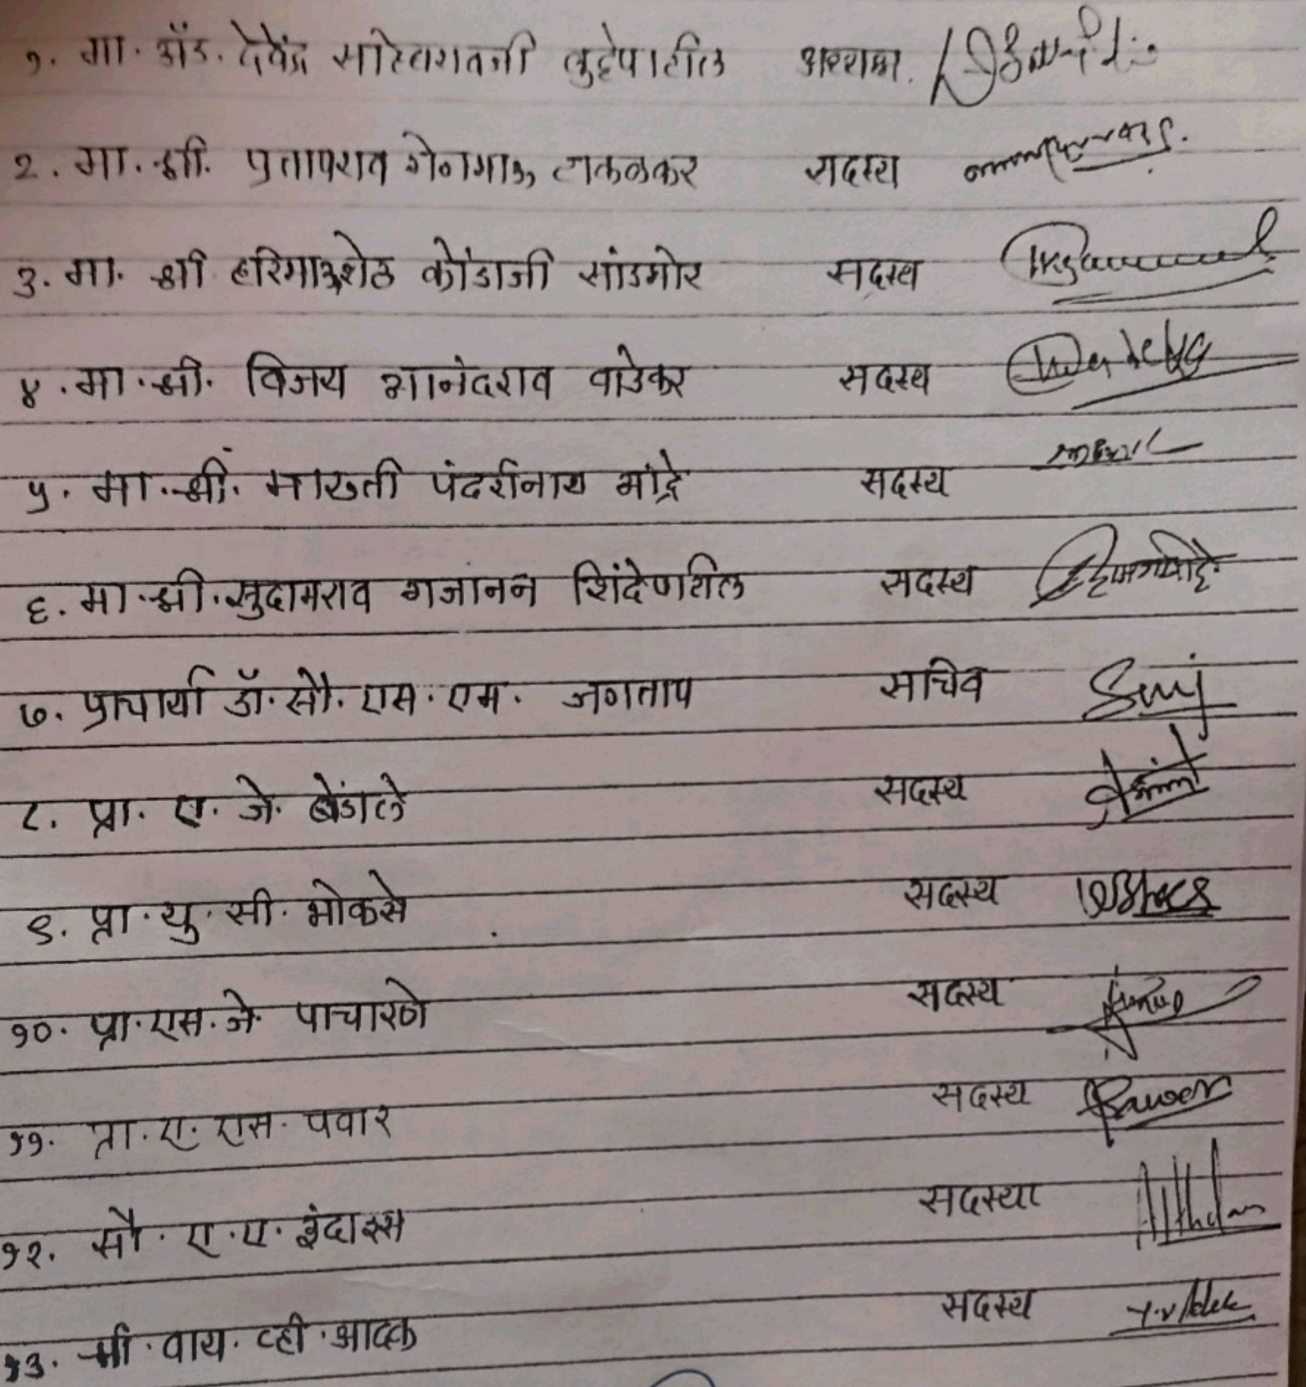 १. मा. अॅड. देवेंद्र बुट्टेपाटील अध्यक्ष.
२. मा. श्री. प्रतापराव टाकळकर सदस्य
३. मा. श्री हरिभाऊशेठ कोंडाजी सांडभोर सदस्य
४. मा. श्री. विजय आनंदराव वाडेकर सदस्य
५. मा. श्री. मारुती पंढरीनाथ भांद्रे सदस्य
६. मा. श्री. सुदामराव गजानन शिंदेपाटील सदस्य
७. प्राचार्या डॉ. सौ. एस. एम. जगताप सचिव
८. प्रा. ए. जे. बेंडाले सदस्य
९. प्रा. यु. सी. भोकसे सदस्य
१०. प्रा. एस. जे. पाचारणे सदस्य
११. प्रा. ए. एस. पवार सदस्य Pawar
१२. सौ. ए. ए. इंदास्स सदस्या
१३. श्री. वाय. व्ही. आदक सदस्य